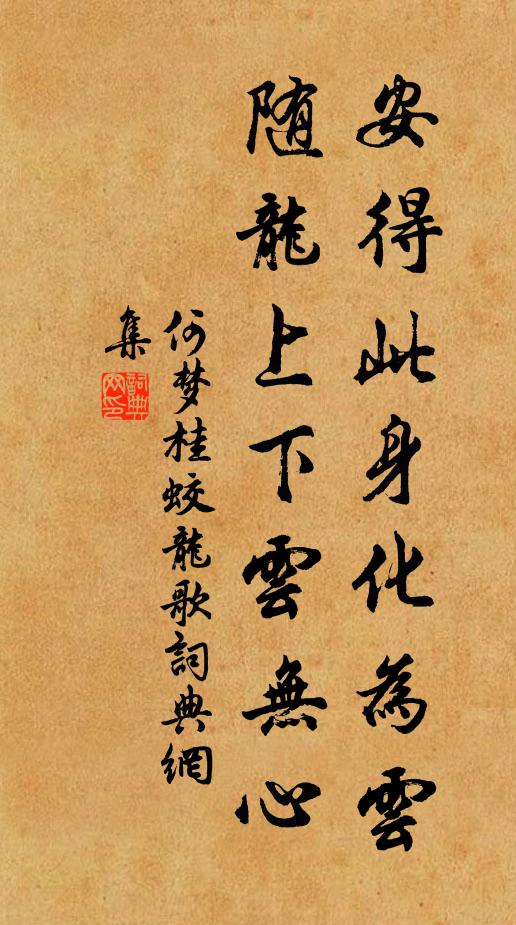 安得此身化為雲
随龍上下雲無心
何梦桂蛟龍歌詞典網
集
詞典网印